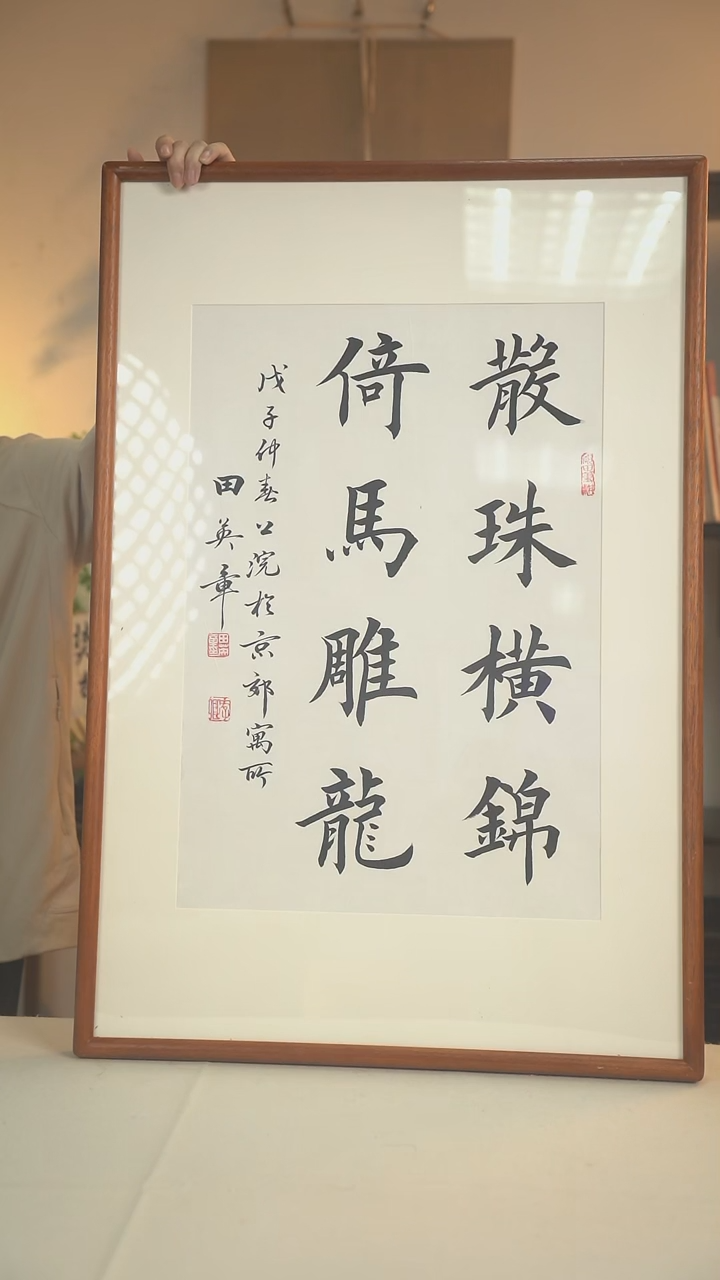 散珠橫錦
倚馬雕龍
戊子仲春公浣於京郊寓所
田英章